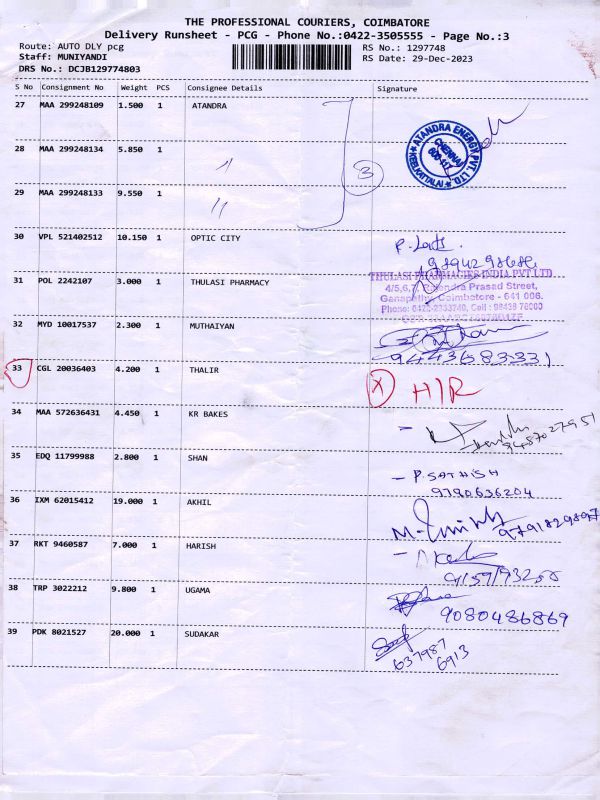 THE PROFESSIONAL COURIERS, COIMBATORE
Delivery Runsheet - PCG - Phone No.:0422-3505555 - Page No.:3
Route: AUTO DLY pcg
RS No.: 1297748
Staff: MUNIYANDI
RS Date: 29-Dec-2023
DRS No.: DCJB129774803
S No Consignment No Weight PCS Consignee Details Signature
27 MAA 299248109 1.500 1 ATANDRA
ATANDRA ENERGY PVT. LTD.
CHENNAI
28 MAA 299248134 5.850 1 "
3
29 MAA 299248133 9.550 1 "
30 VPL 521402512 10.150 1 OPTIC CITY
9894298686
31 POL 2242107 3.000 1 THULASI PHARMACY
THULASI PHARMACIES INDIA PVT LTD
4/5,6,7, Rajendra Prasad Street,
Ganapathy, Coimbatore - 641 006.
32 MYD 10017537 2.300 1 MUTHAIYAN
9443683331
33 CGL 20036403 4.200 1 THALIR
X H/R
34 MAA 572636431 4.450 1 KR BAKES
9487027951
35 EDQ 11799988 2.800 1 SHAN
- P. SATHISH
9790636204
36 IXM 62015412 19.000 1 AKHIL
9791829897
37 RKT 9460587 7.000 1 HARISH
38 TRP 3022212 9.800 1 UGAMA
9080486869
39 PDK 8021527 20.000 1 SUDAKAR
637987
6913